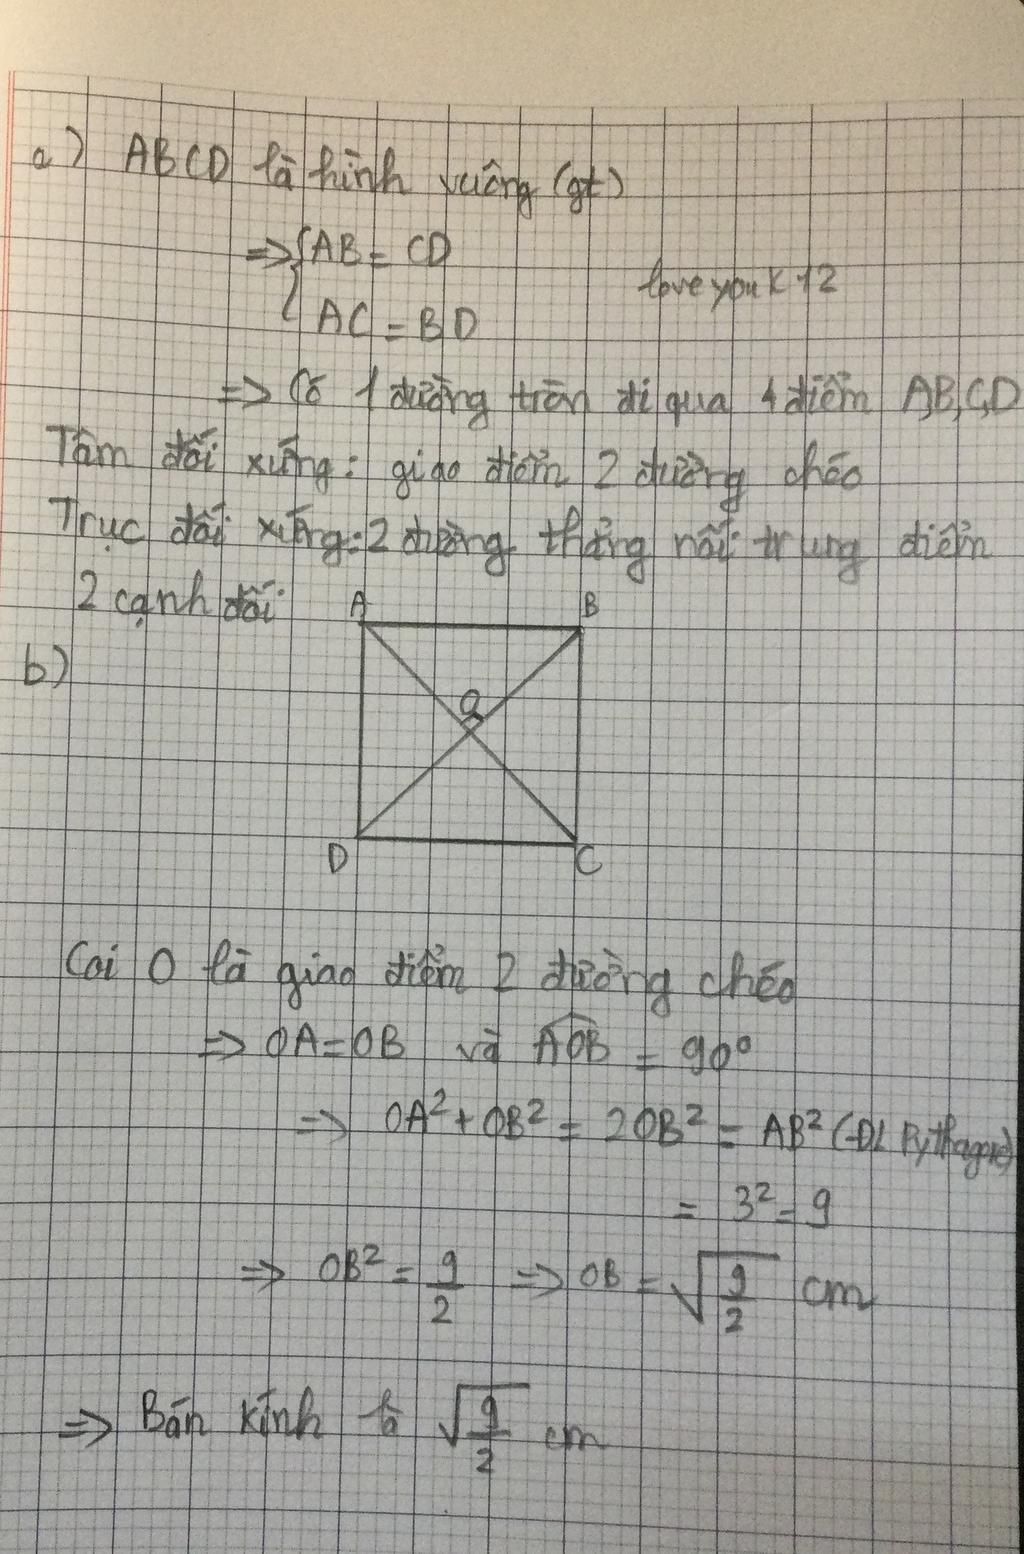 a) ABCD là hình vuông (gt)
=> { AB = CD
AC = BD
love you K 12
=> Có 1 đường tròn đi qua 4 điểm A,B,C,D
Tâm đối xứng: giao điểm 2 đường chéo
Trục đối xứng: 2 đường thẳng nối trung điểm
2 cạnh đối
A B
b)
O
D C
Coi O là giao điểm 2 đường chéo
=> OA = OB và \widehat{AOB} = 90°
=> OA² + OB² = 2OB² = AB² (ĐL Pythagore)
= 3² = 9
=> OB² = 9/2 => OB = √(9/2) cm
=> Bán kính là √(9/2) cm